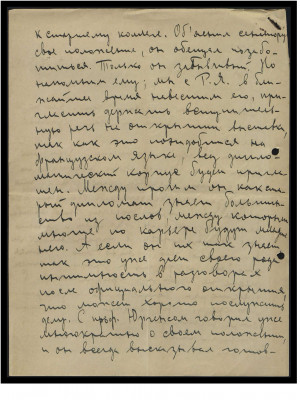 к старшему коллеге. Объяснил сенатору
свое положение, он обещал позабо-
титься. Только он забывчив. Но
напомним ему; мы с Р.Я. в бли-
жайшее время навестим его, при-
гласить держать вступительную
речь на открытии выставки,
так как это понадобится на
французском языке, ведь дипло-
матический корпус будет пригла-
шен. Между прочим он как ста-
рый дипломат знает большин-
ство из послов, между которыми
многие по карьере будут младше
него. А если он их так знает
так это уже дает своего рода
интимность в разговорах
после официального открытия,
это может хорошо послужить
делу. С проф. Юргенсом говорил уже
многократно о своем положении,
и он всегда высказывал готов-